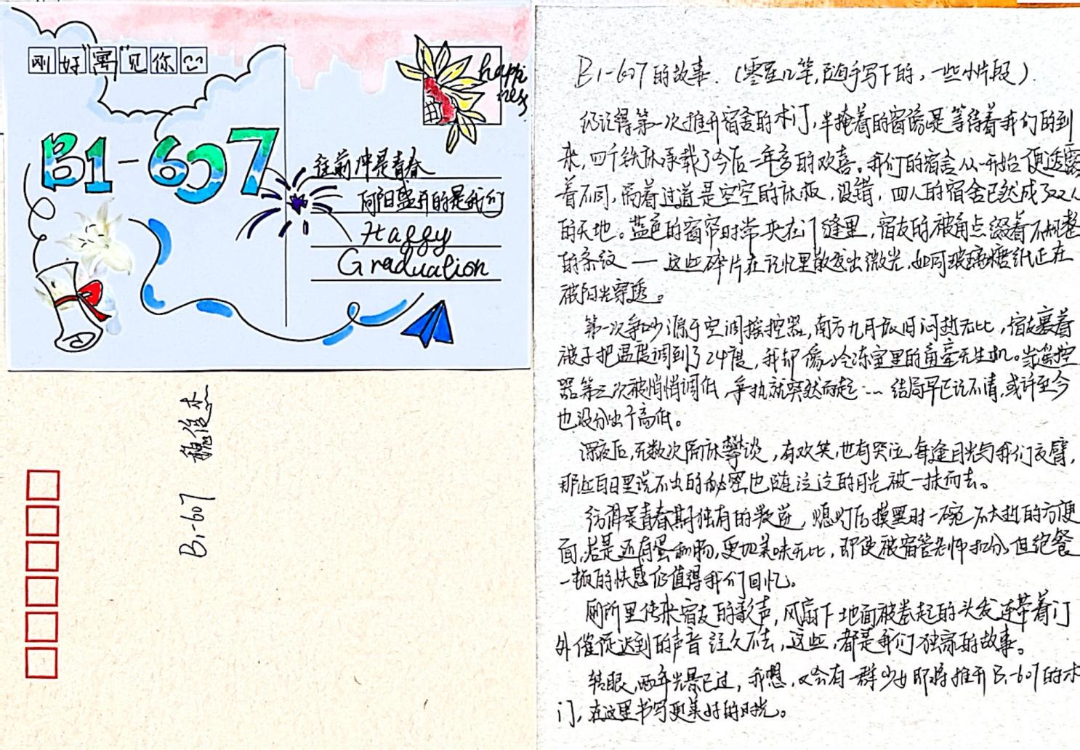 刚好"寓"见你
B1-607
happi
ness
往前冲是青春
向阳盛开的是我们
Happy
Graduation
B1-607 魏俊杰
B1-607的故事.(零星几笔,随手写下的,一些小片段).
仍记得第一次推开宿舍的木门,半掩着的窗诱是等待着我们的到
来,四千铁床承载了今后一年多的欢喜。我们的宿舍从一开始便透露
着不同,隔着过道是空空的床板,没错,四人的宿舍已然成了
的天地。蓝色的窗帘时常夹在门缝里,宿友的被角点缀着不规整
的条纹——这些碎片在记忆里散发出微光,如同玻璃糖纸正在
被阳光穿透。
第一次争吵源于空调摇控器,南方九月放日闷热无比,宿友裹着
被子把温度调到了24度,我却像冷冻室里的鱼毫无生机。当遥控
器第三次被悄悄调低,争执就突然而起…结局早已记不清,或许至今
也没分出个高低。
深夜后,无数次隔床攀谈,有欢笑,也有哭泣,每逢月光与我们交臂,
那些白日里说不出的秘密也随泛泛的月光被一抹而去。
宵夜是青春期独有的叛逆,熄灯后摸黑时一碗不太热的方便
面,若是还有蛋和肠,更加美味无比,即使被宿管老师扣分,但饱餐
一顿的快感仍值得我们回忆。
厕所里传来宿友的歌声,风扇下地面被卷起的头发连带着门
外催促迟到的声音经久不去,这些,都是我们独家的故事。
转眼,两年光景已过,我想,又会有一群少女即将推开B1-607的木
门,在这里书写更美好的时光。